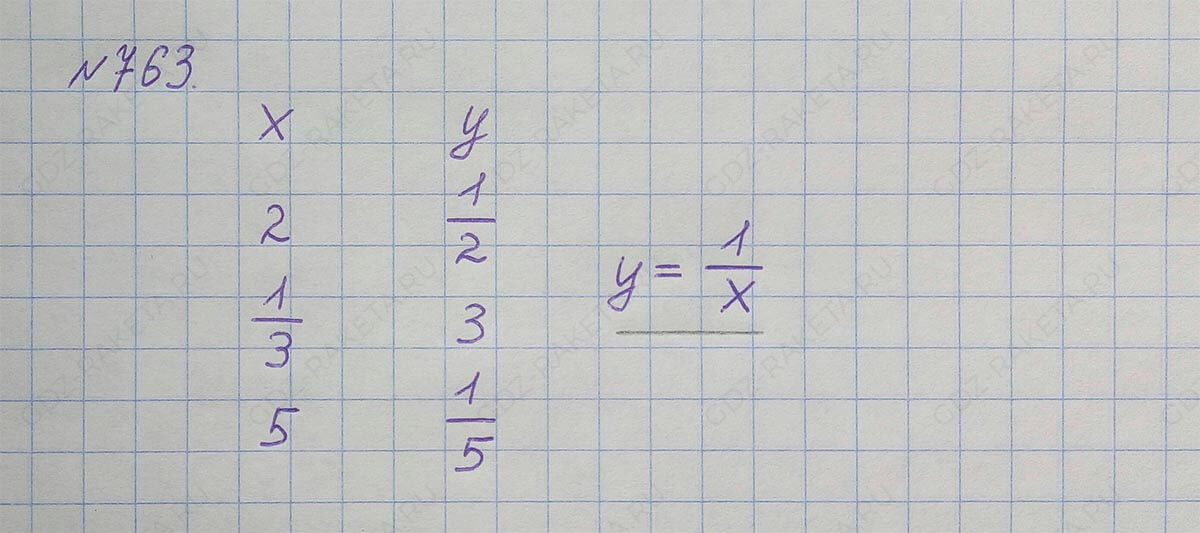 №763.
x y
2 1/2
1/3 3
5 1/5
y = 1/x
GDZ-RAKETA.RU